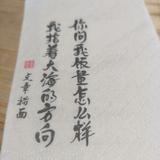 你问我饭量怎么样
我指着大海的方向
文章 面